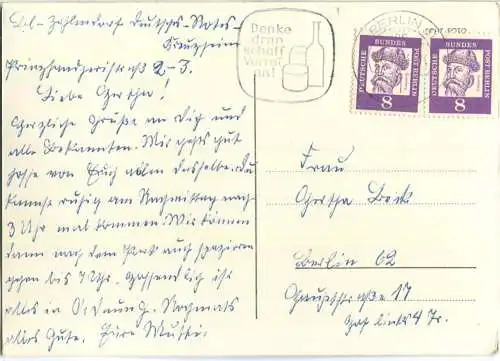 Bln-Zehlendorf Deutsches-Rotes-
Kreuzheim
Prinzhandjeristraß 2-3.
Liebe Gertha!
Herzliche Grüße an Dich und
alle Bekannten. Mir gehts gut
hoffe von Euch allen dasselbe. Du
kannst ruhig am Nachmittag nach
3 Uhr mal kommen. Wir können
dann nach dem Park auch spazieren
gehen bis 7 Uhr. Hoffendlich ist
alles in Ordnung. Nochmals
alles Gute. Eure Mutti.
Denke
dran
schaff
Vorrat
an!
BERLIN
DEUTSCHE BUNDESPOST BERLIN
8
DEUTSCHE BUNDESPOST BERLIN
8
Frau
Gertha Beck
Berlin 62
Hauptstraße 17
Hof links 4 Tr.